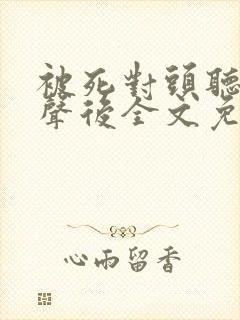 被死對頭聽
聲後全文免
心雨留香